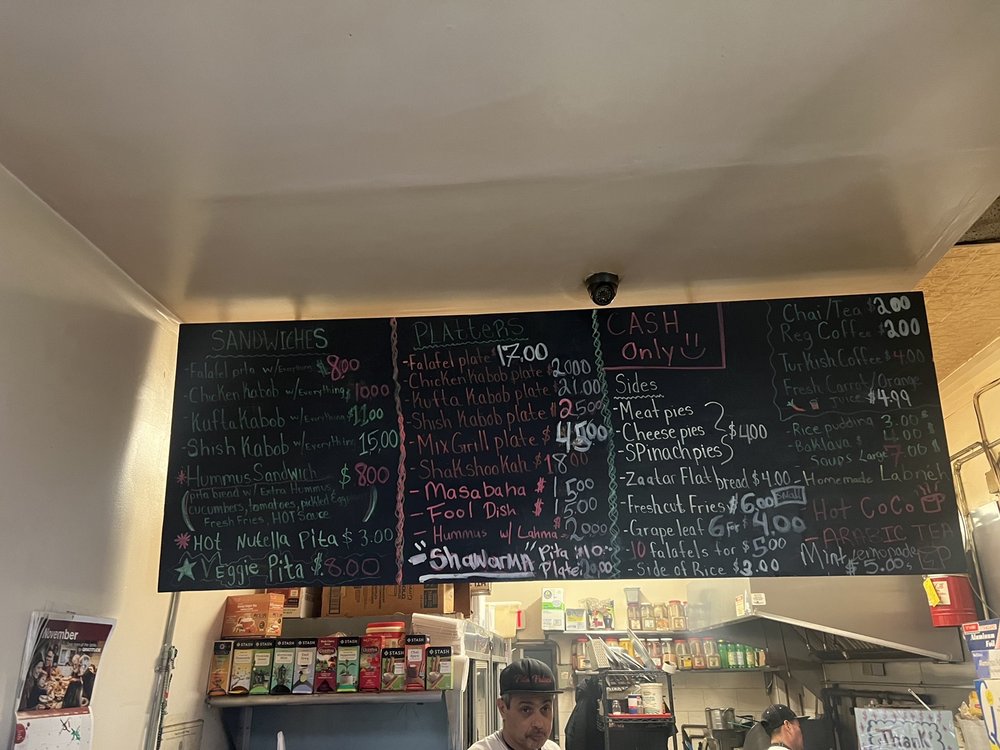 SANDWICHES
-Falafel pita w/Everything $8.00
-Chicken Kabob w/Everything $10.00
-Kufta Kabob w/Everything $11.00
-Shish Kabob w/Everything 15.00
*Hummus Sandwich $8.00
(pita bread w/ Extra Hummus,
cucumbers, tomatoes, pickled Eggplant
Fresh Fries, HOT Sauce)
*Hot Nutella Pita $3.00
Veggie Pita $8.00
PLATTERS
-Falafel plate $17.00
-Chicken Kabob plate $20.00
-Kufta Kabob plate $21.00
-Shish Kabob plate $25.00
-Mix Grill plate $45.00
-Shakshookah $18.00
-Masabaha $15.00
-Fool Dish $15.00
-Hummus w/ Lahma $20.00
-Shawarma Pita $10.00
Plate 20.00
CASH
Only
Sides
-Meat pies
-Cheese pies $4.00
-Spinach pies
-Zaatar Flat bread $4.00
-Fresh cut Fries $6.00 small
-Grape leaf 6 for $4.00
-10 falafels for $5.00
-Side of Rice $3.00
Chai/Tea $2.00
Reg Coffee $2.00
Turkish Coffee $4.00
Fresh Carrot/Orange
Juice $4.99
-Rice pudding 3.00
-Baklava
-Soups Large 7.00
-Homemade Labneh
Hot CoCo
-ARABIC TEA
Mint lemonade $5.00
November
STASH
STASH
STASH
STASH
STASH
STASH
STASH
STASH
Thank